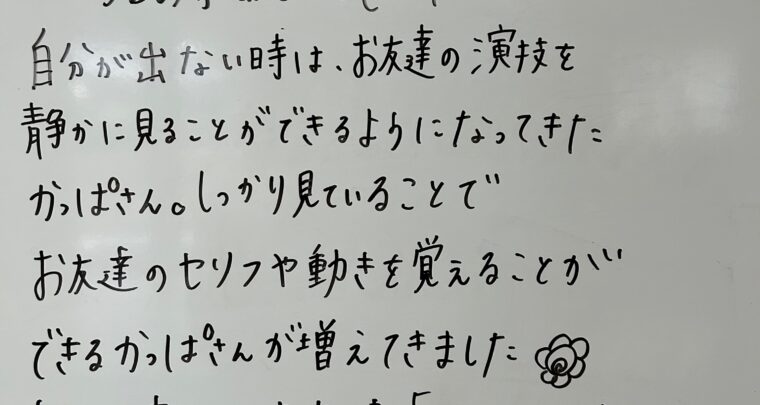 自分が出ない時は、お友達の演技を
静かに見ることができるようになってきた
かっぱさん。しっかり見ていることで
お友達のセリフや動きを覚えることが
できるかっぱさんが増えてきました